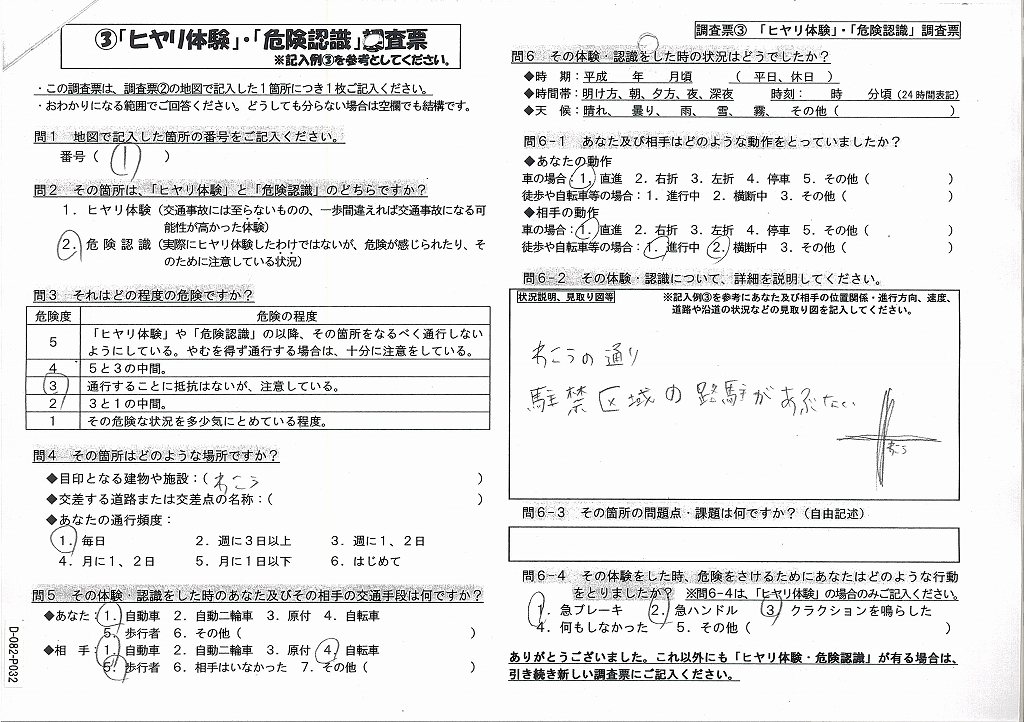 ③「ヒヤリ体験」・「危険認識」調査票
※記入例③を参考としてください。
・この調査票は、調査票②の地図で記入した1箇所につき1枚ご記入ください。
・おわかりになる範囲でご回答ください。どうしても分らない場合は空欄でも結構です。
問1 地図で記入した箇所の番号をご記入ください。
番号( 1 )
問2 その箇所は、「ヒヤリ体験」と「危険認識」のどちらですか?
1.ヒヤリ体験(交通事故には至らないものの、一歩間違えれば交通事故になる可
能性が高かった体験)
2.危険認識(実際にヒヤリ体験したわけではないが、危険が感じられたり、そ
のために注意している状況)
問3 それはどの程度の危険ですか?
危険度 危険の程度
5 「ヒヤリ体験」や「危険認識」の以降、その箇所をなるべく通行しない
ようにしている。やむを得ず通行する場合は、十分に注意をしている。
4 5と3の中間。
3 通行することに抵抗はないが、注意している。
2 3と1の中間。
1 その危険な状況を多少気にとめている程度。
問4 その箇所はどのような場所ですか?
◆目印となる建物や施設:( わこう )
◆交差する道路または交差点の名称:( )
◆あなたの通行頻度:
1.毎日 2.週に3日以上 3.週に1、2日
4.月に1、2日 5.月に1日以下 6.はじめて
問5 その体験・認識をした時のあなた及びその相手の交通手段は何ですか?
◆あなた:1.自動車 2.自動二輪車 3.原付 4.自転車
5.歩行者 6.その他( )
◆相 手:1.自動車 2.自動二輪車 3.原付 4.自転車
5.歩行者 6.相手はいなかった 7.その他( )
D-082-P032
調査票③ 「ヒヤリ体験」・「危険認識」調査票
問6 その体験・認識をした時の状況はどうでしたか?
◆時 期:平成 年 月頃 ( 平日、休日 )
◆時間帯:明け方、朝、夕方、夜、深夜 時刻: 時 分頃(24時間表記)
◆天 候:晴れ、 曇り、 雨、 雪、 霧、 その他( )
問6-1 あなた及び相手はどのような動作をとっていましたか?
◆あなたの動作
車の場合:1.直進 2.右折 3.左折 4.停車 5.その他( )
徒歩や自転車等の場合:1.進行中 2.横断中 3.その他( )
◆相手の動作
車の場合:1.直進 2.右折 3.左折 4.停車 5.その他( )
徒歩や自転車等の場合:1.進行中 2.横断中 3.その他( )
問6-2 その体験・認識について、詳細を説明してください。
状況説明、見取り図等 ※記入例③を参考にあなた及び相手の位置関係・進行方向、速度、
道路や沿道の状況などの見取り図を記入してください。
わこうの通り
駐禁区域の路駐があぶない
わこう
問6-3 その箇所の問題点・課題は何ですか?(自由記述)
問6-4 その体験をした時、危険をさけるためにあなたはどのような行動
をとりましたか? ※問6-4は、「ヒヤリ体験」の場合のみご記入ください。
1.急ブレーキ 2.急ハンドル 3.クラクションを鳴らした
4.何もしなかった 5.その他( )
ありがとうございました。これ以外にも「ヒヤリ体験・危険認識」が有る場合は、
引き続き新しい調査票にご記入ください。